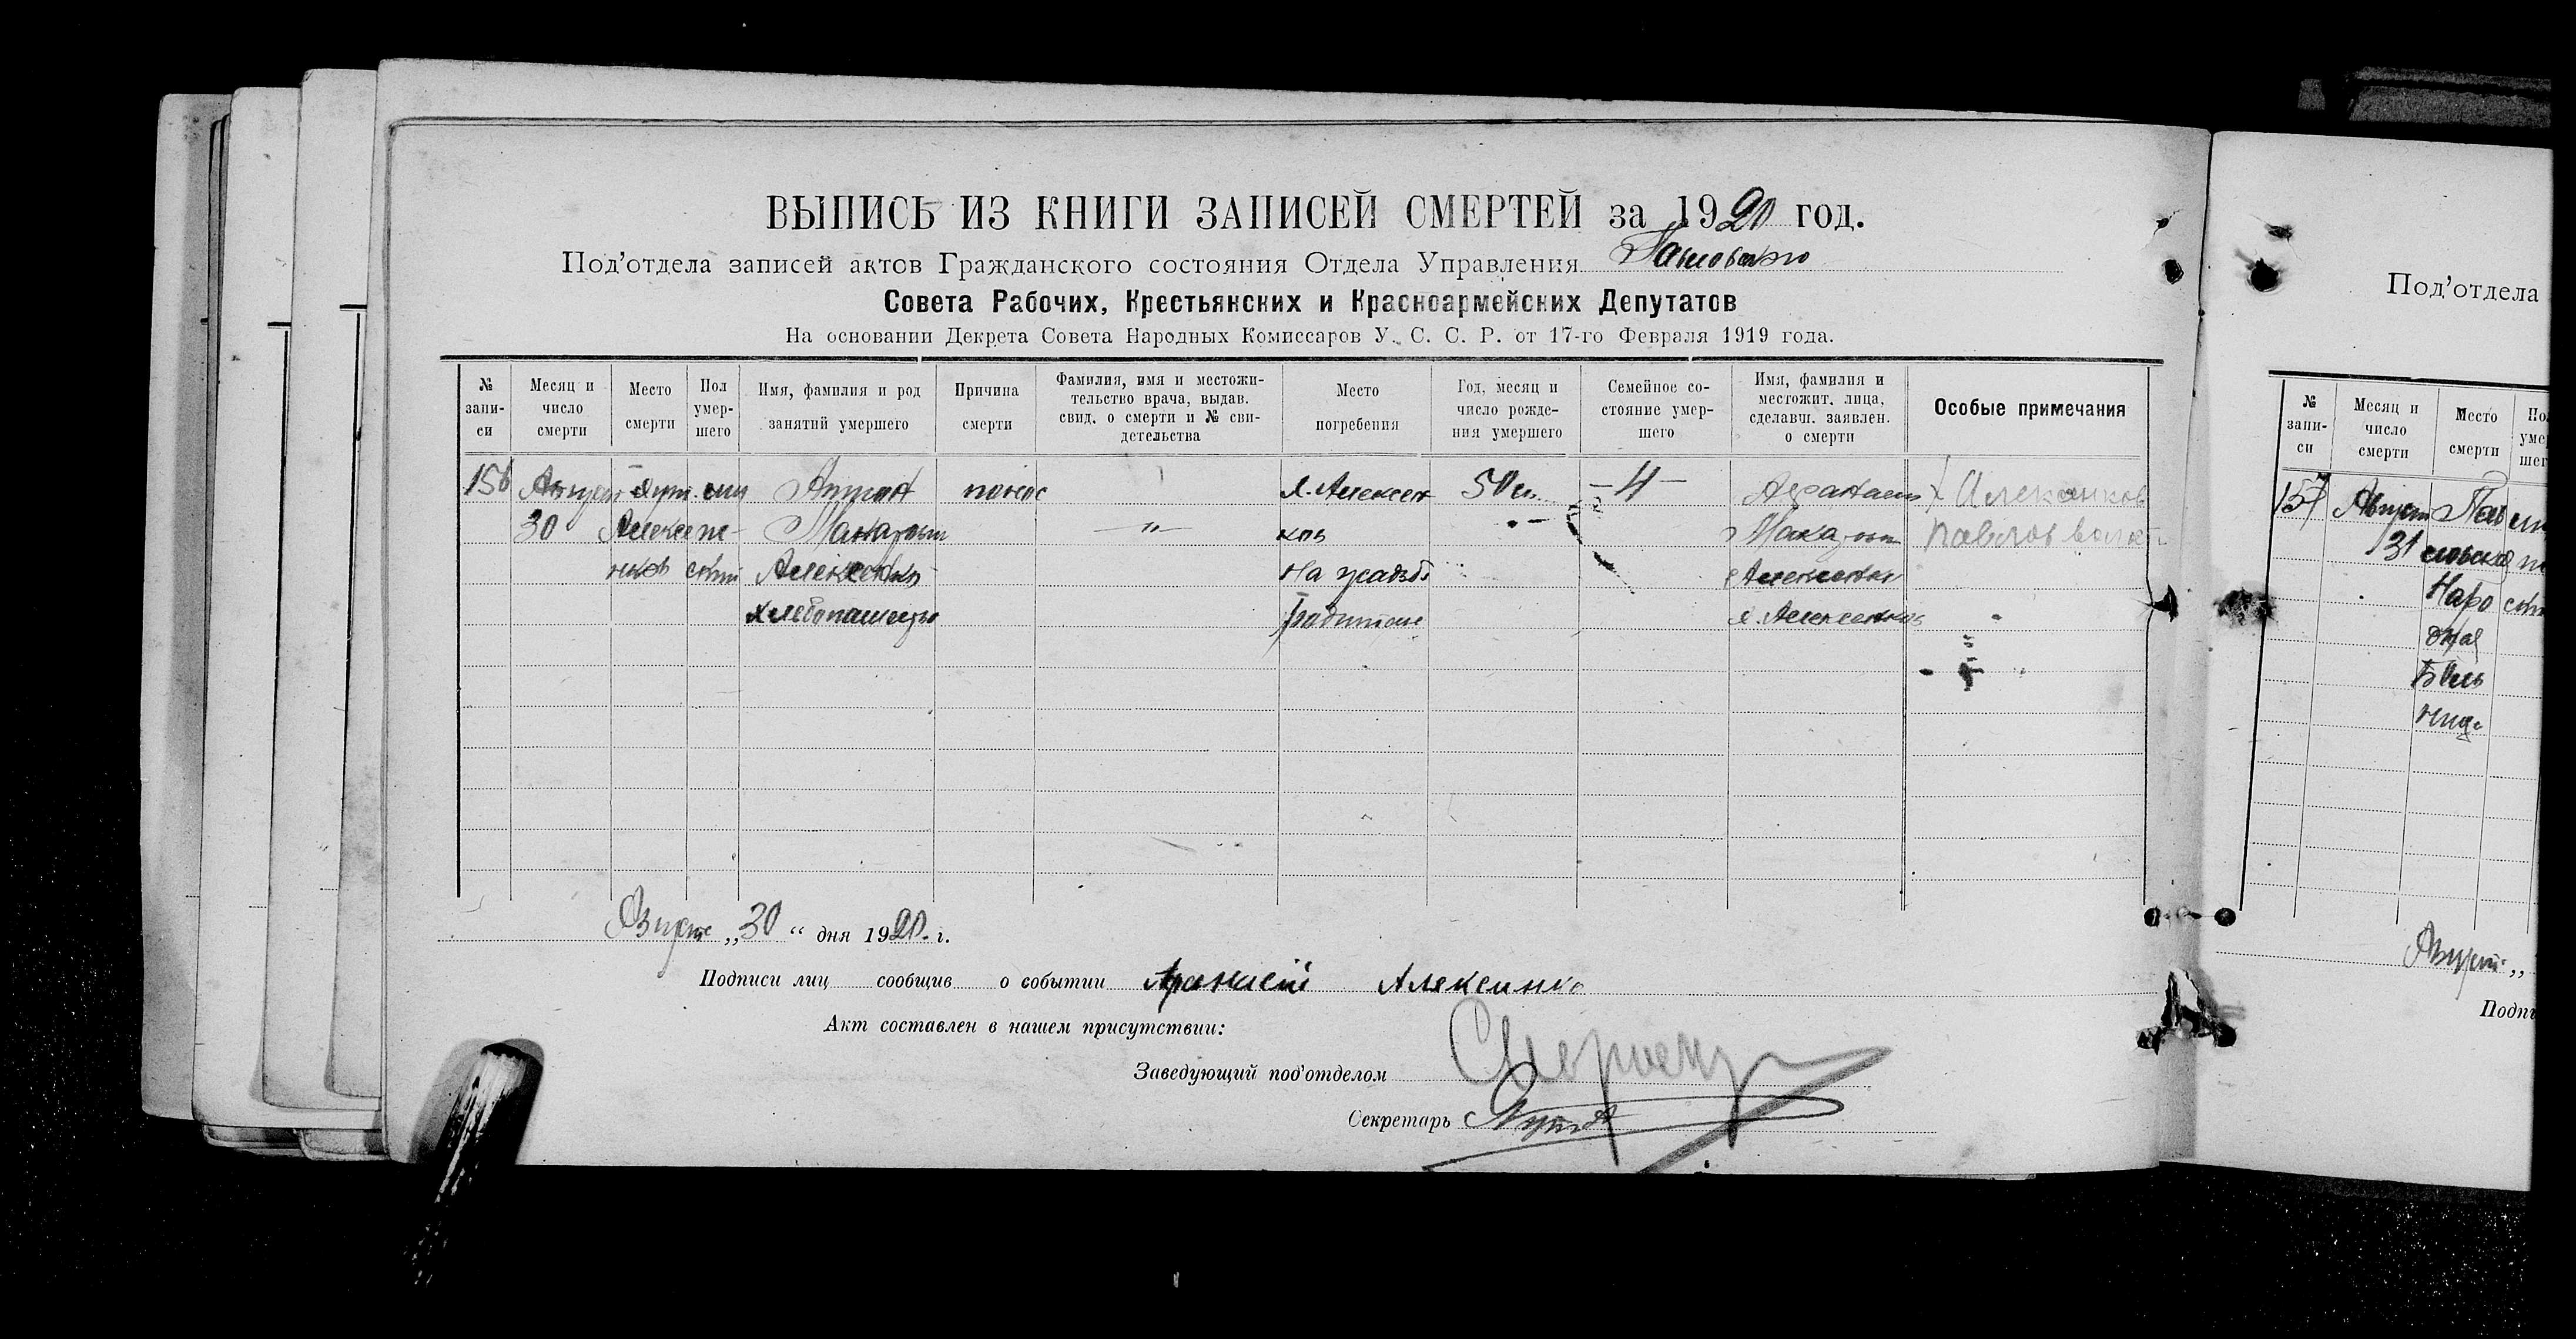 ВЫПИСЬ ИЗ КНИГИ ЗАПИСЕЙ СМЕРТЕЙ за 1920 год.
Под'отдела записей актов Гражданского состояния Отдела Управления
Совета Рабочих, Крестьянских и Красноармейских Депутатов
На основании Декрета Совета Народных Комиссаров У. С. С. Р. от 17-го Февраля 1919 года.
№ запи-си
Месяц и число смерти
Место смерти
Пол умер-шего
Имя, фамилия и род занятий умершего
Причина смерти
Фамилия, имя и местожи-тельство врача, выдав. свид. о смерти и № сви-детельства
Место погребения
Год, месяц и число рожде-ния умершего
Семейное со-стояние умер-шего
Имя, фамилия и местожит. лица, сделавш. заявлен. о смерти
Особые примечания
156
Август
30
х. Алексен
ков
на усадьб
50 л.
— 4 —
понос
— " —
Антон
Макаров
Алексенко
хлебопашец
Афанасий
Макаров
Алексенко
х. Алексенков
Август „30“ дня 1920 г.
Подписи лиц сообщив о событии Афанасий Алексенко
Акт составлен в нашем присутствии:
Заведующий под'отделом
Секретарь
Под'отдела
№ запи-си
Месяц и число смерти
Место смерти
157
Август
31
Пав
ловска
Наро
дная
Боль
ница
Август „